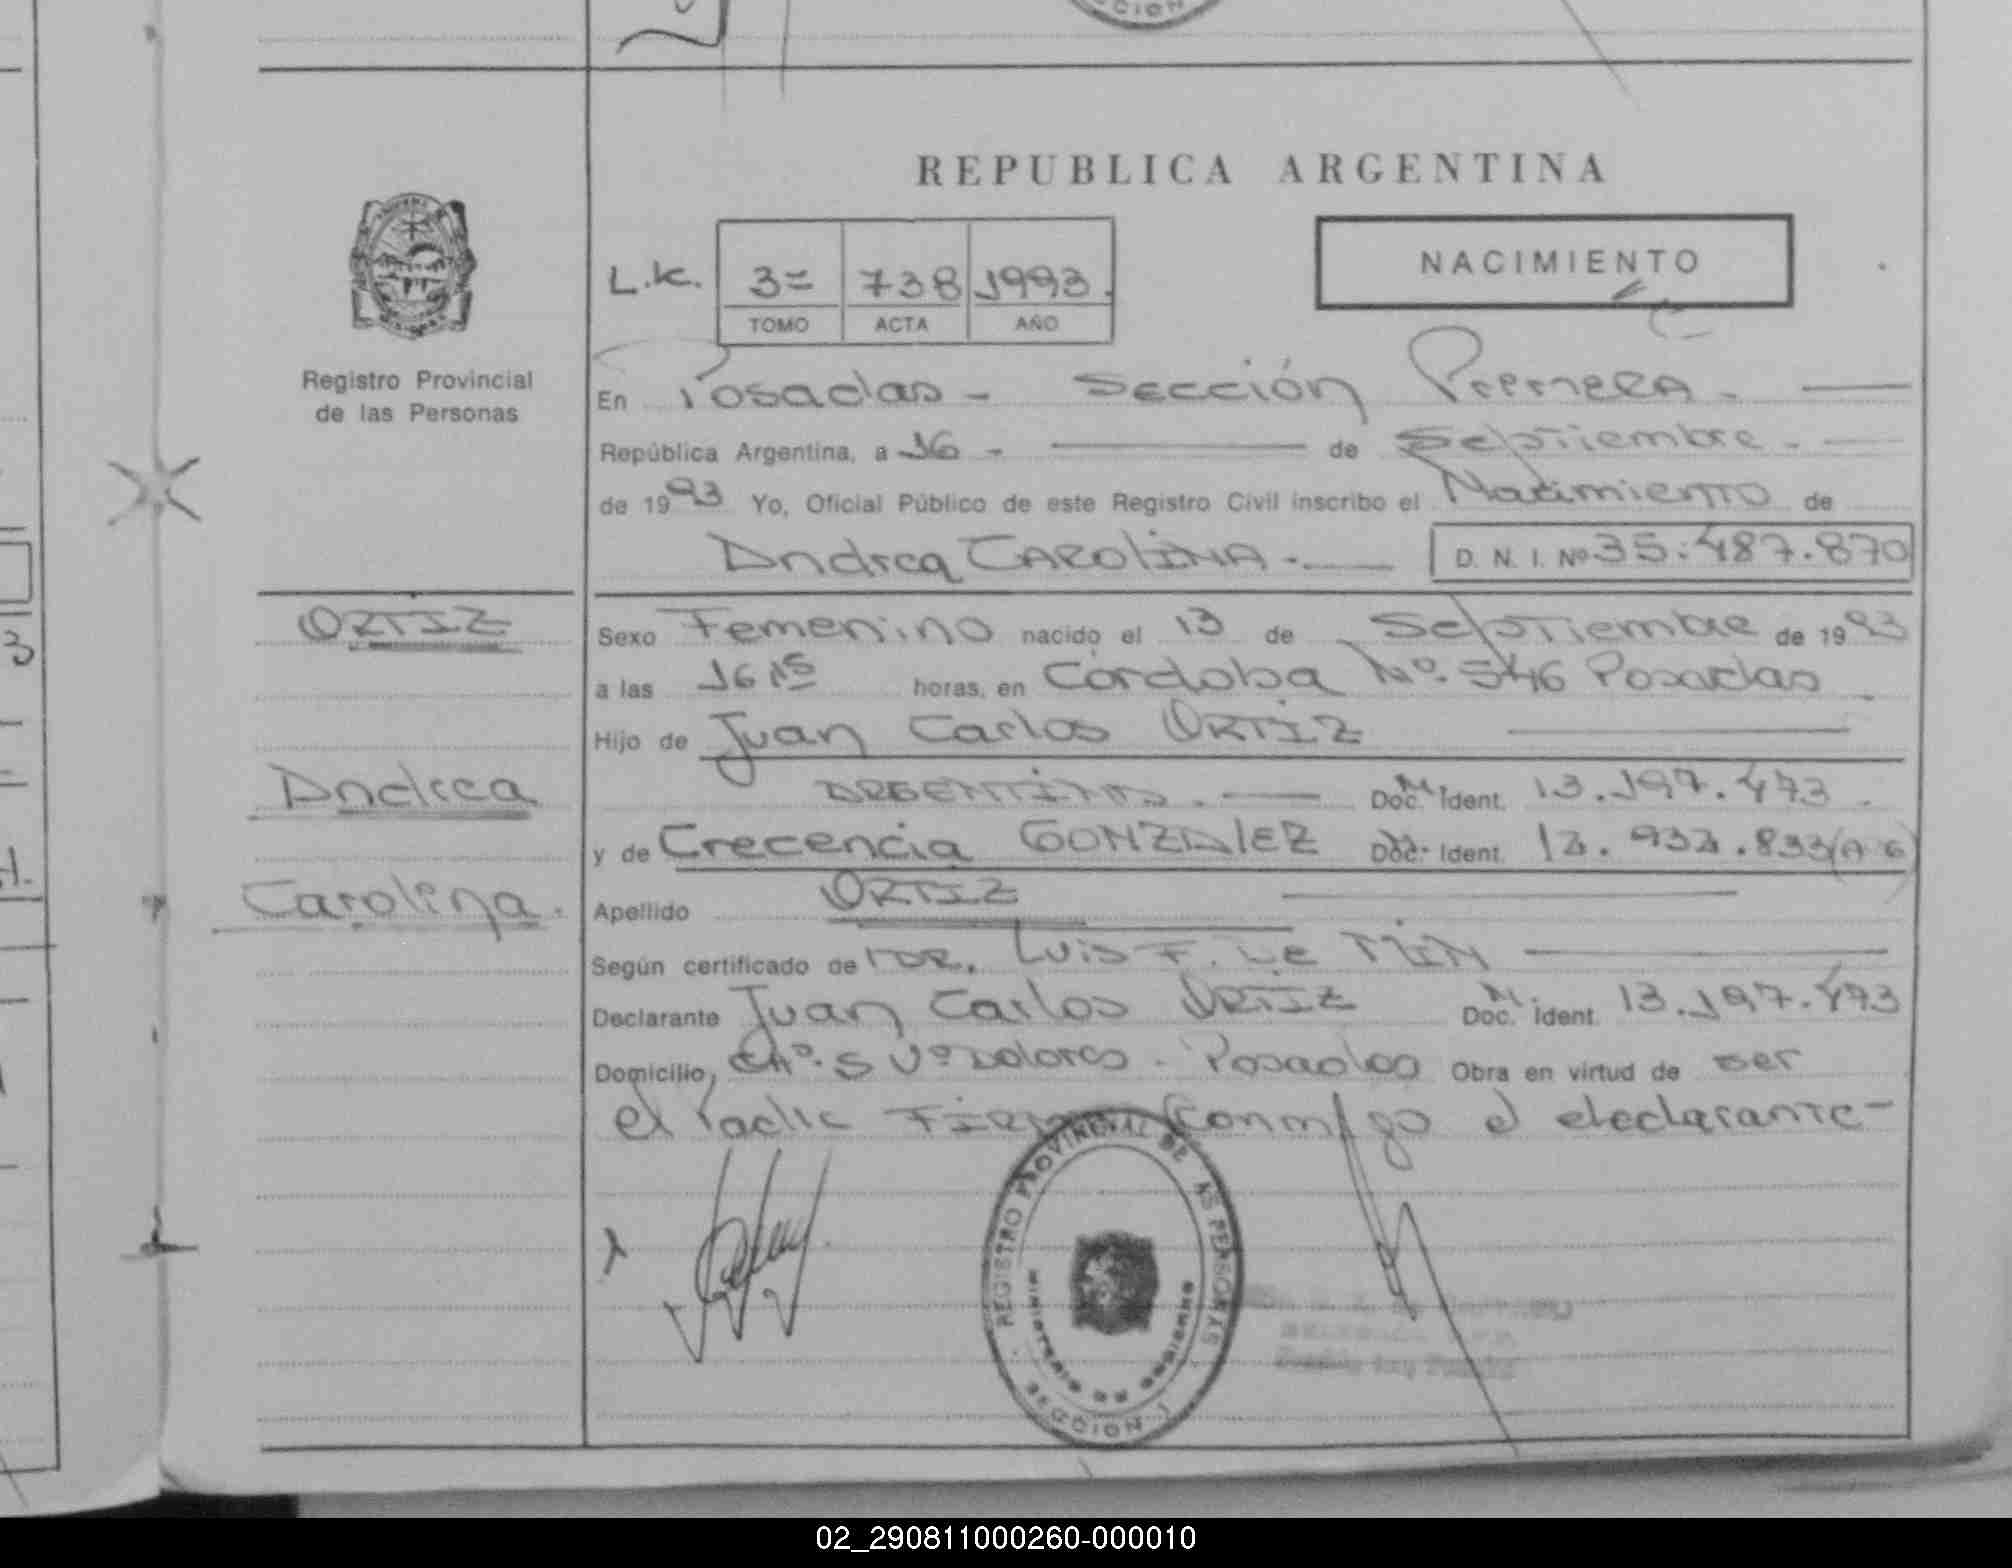 REPUBLICA ARGENTINA
NACIMIENTO
L.K. 3= 738 1993.
TOMO ACTA AÑO
Registro Provincial
de las Personas
En Posadas - Sección Primera -
República Argentina, a 16 - de Septiembre -
de 1993 Yo, Oficial Público de este Registro Civil inscribo el Nacimiento de
Andrea CAROLINA.- D. N. I. Nº 35.487.870
ORTIZ
Sexo Femenino nacido el 13 de Septiembre de 1993
a las 16 15 horas, en Córdoba Nº 546 Posadas
Hijo de Juan Carlos ORTIZ
Andrea
ARGENTINO. - Doc. Ident. 13.197.473.
y de Crecencia GONZALEZ Doc. Ident. 12.932.833 (A G)
Carolina.
Apellido ORTIZ
Según certificado de DR. Luis F. De
Declarante Juan Carlos ORTIZ Doc. Ident. 13.197.473
Domicilio, Chº. S Vº Dolores - Posadas Obra en virtud de ser
el Padre Firma Conmigo el declarante-
REGISTRO PROVINCIAL DE LAS PERSONAS
MINISTERIO DE GOBIERNO
SECCION 1
02_290811000260-000010